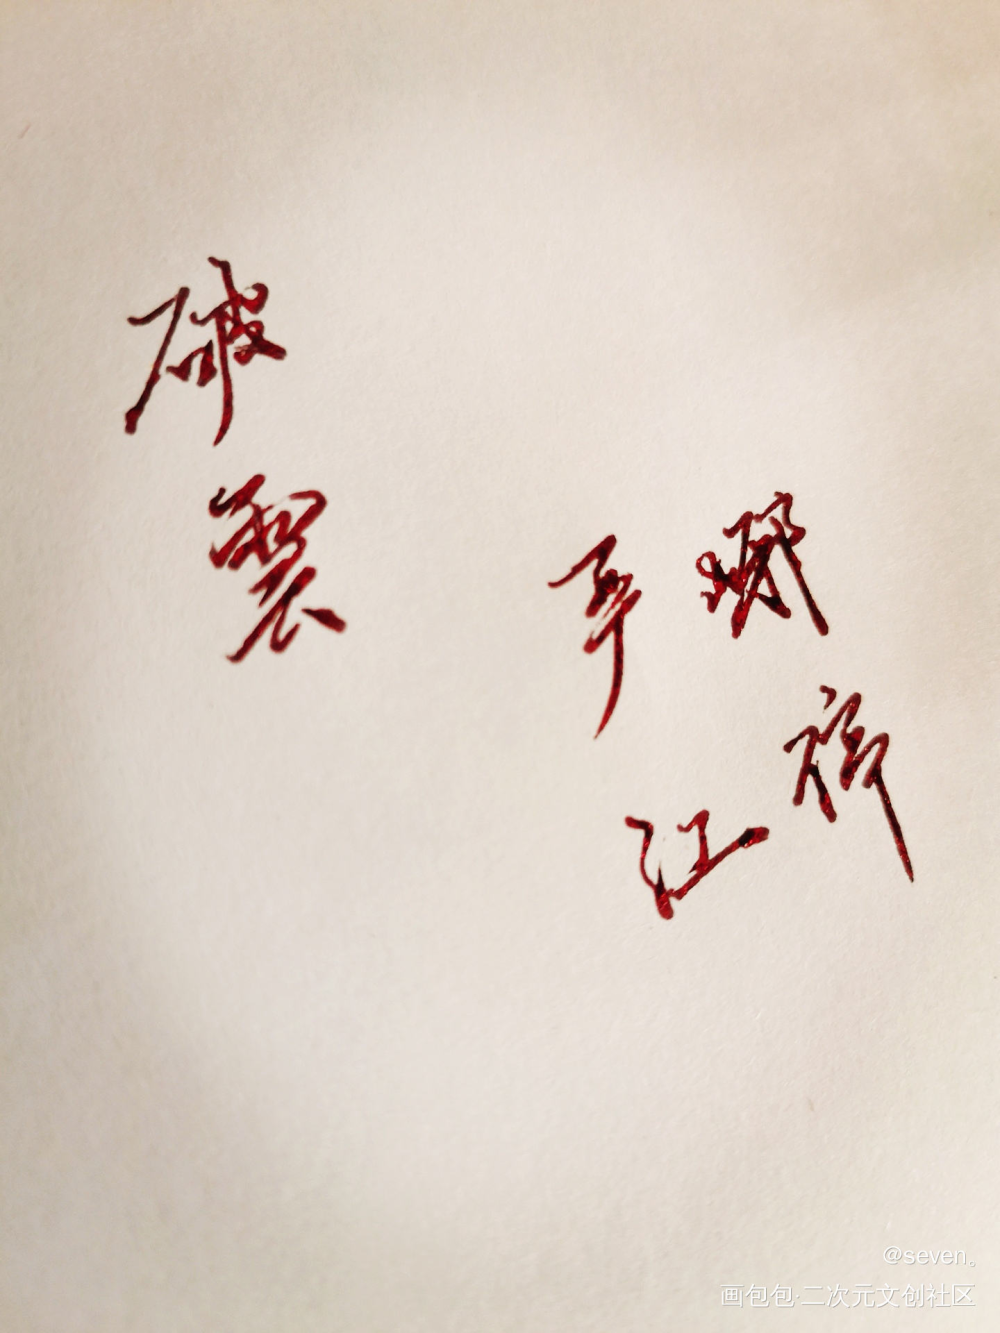 破雲
严峫
江停
@seven。
画包包·二次元文创社区